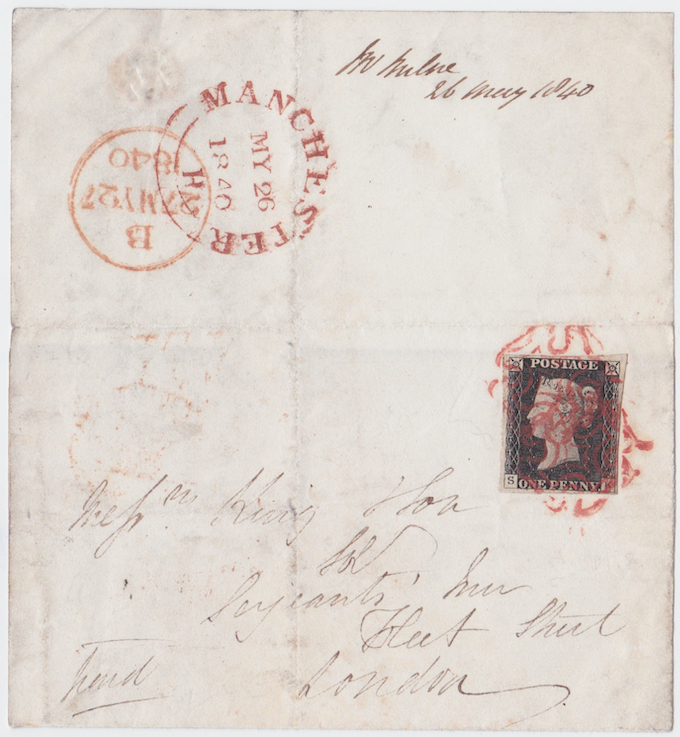 Mr Milne
26 May 1840
MANCHESTER
MY 26
1840
B
27MY27
1840
POSTAGE
S
ONE PENNY
Messrs King & Son
Sol
Serjeants' Inn
Fleet Street
London